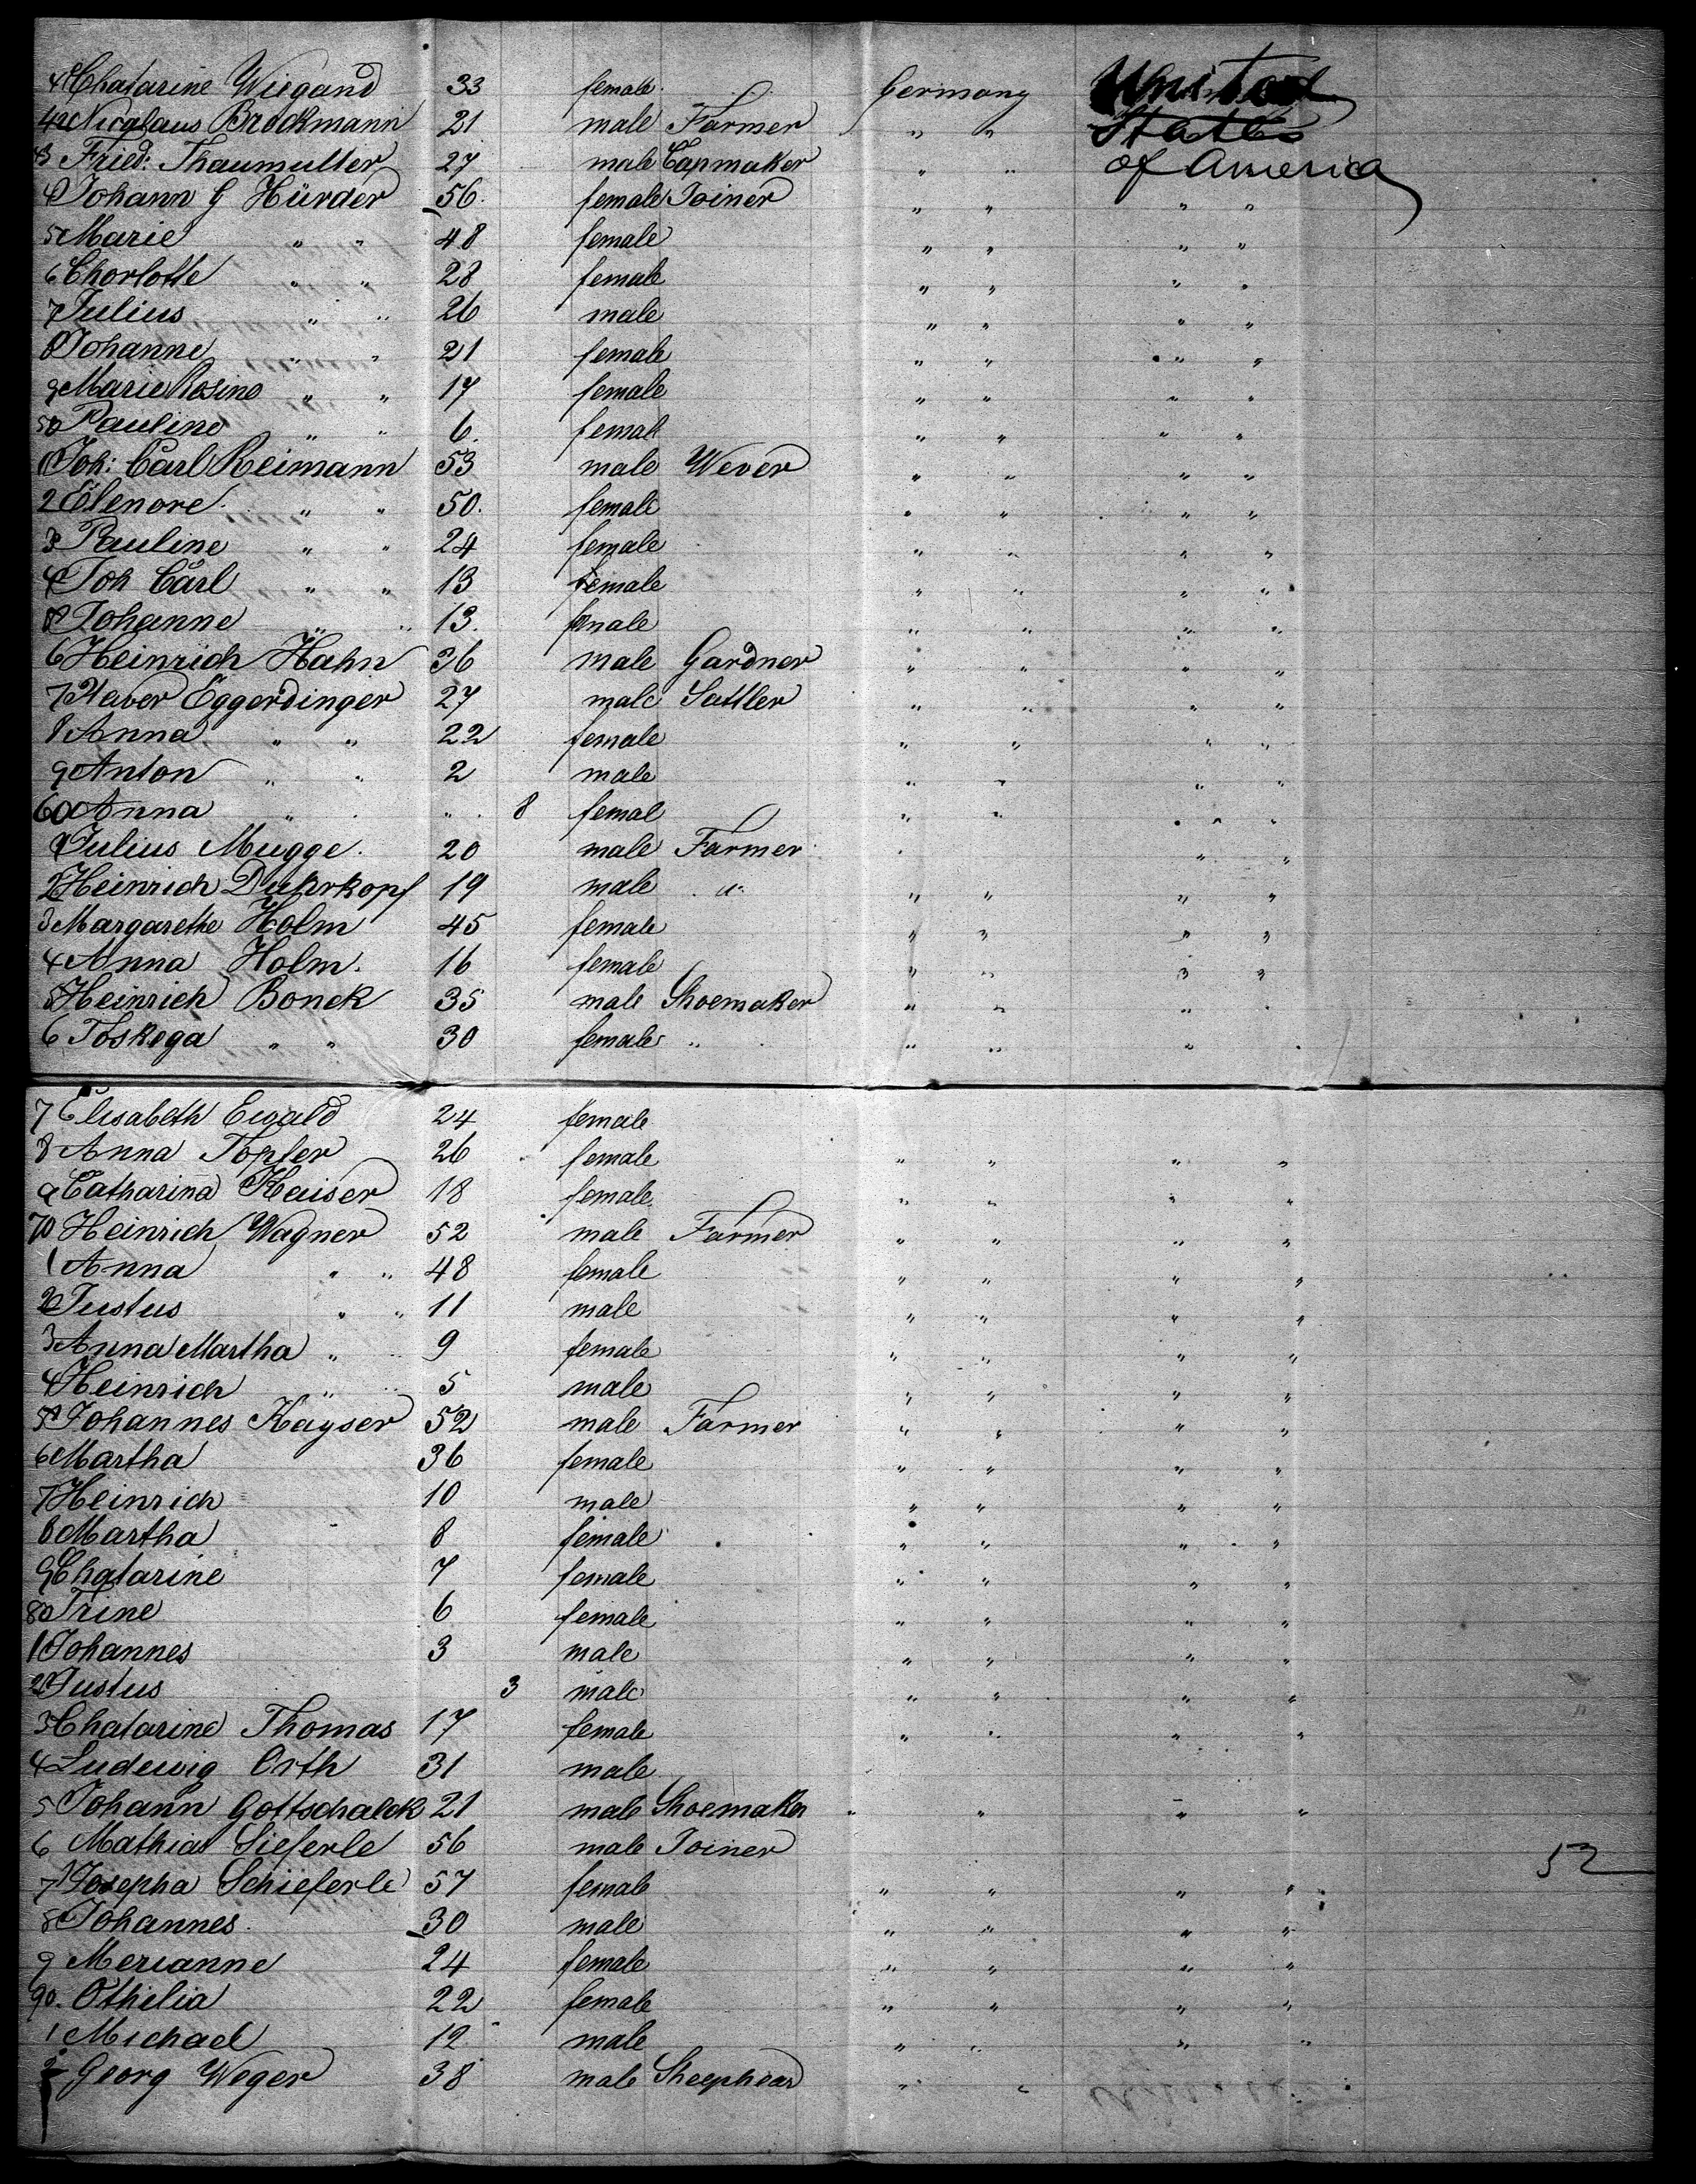 41 Chatarine Wiegand 33 female Germany United
42 Nicolaus Brockmann 21 male Farmer " " States
43 Fried: Thaumuller 27 male Capmaker " " of America
4 Johann G Hürder 56. female Joiner " " " "
5 Marie " " 48 female " " " "
6 Chorlotte " " 28 female " " " "
7 Julius " " 26 male " " " "
8 Johanne " " 21 female " " " "
9 Marie Rosine " " 17 female " " " "
50 Pauline " " 6. female " " " "
1 Joh: Carl Reimann 53 male Wever " " " "
2 Elenore " " 50. female " " " "
3 Pauline " " 24 female " " " "
4 Joh Carl " " 13 female " " " "
5 Johanne " " 13. female " " " "
6 Heinrich Hahn 36 male Gardner " " " "
7 Xaver Eggerdinger 27 male Sattler " " " "
8 Anna " " 22 female " " " "
9 Anton " " 2 male " " " "
60 Anna " " " 8 femal " " " "
1 Julius Mugge. 20 male Farmer " " "
2 Heinrich Duhrkopf 19 male " " " " "
3 Margarethe Holm 45 female " " " "
4 Anna Holm. 16 female " " " "
5 Heinrich Bonck 35 male Shoemaker " " " "
6 Toskega " " 30 female " " " "
7 Elisabeth Ewald 24 female
8 Anna Topfer 26 female " " " "
9 Catharina Kaiser 18 female " " " "
70 Heinrich Wagner 52 male Farmer " " " "
1 Anna " " 48 female " " " "
2 Justus " " 11 male " " " "
3 Anna Martha " " 9 female " " " "
4 Heinrich " " 5 male " " " "
5 Johannes Kayser 52 male Farmer " " " "
6 Martha 36 female " " " "
7 Heinrich 10 male " " " "
8 Martha 8 female " " " "
9 Chatarine 7 female " " " "
80 Trine 6 female " " " "
1 Johannes 3 male " " " "
2 Justus 3 male " " " "
3 Chatarine Thomas 17 female " " " "
4 Ludewig Orth 31 male
5 Johann Gottschalck 21 male Shoemaker " " " "
6 Mathias Sieferle 56 male Joiner 52
7 Josepha Schieferle 57 female " " " "
8 Johannes. 30 male " " " "
9 Merianne 24 female " " " "
90. Othilia 22 female " " " "
1 Michael 12 male " " " "
2 Georg Weger 38 male Sheepheard " "